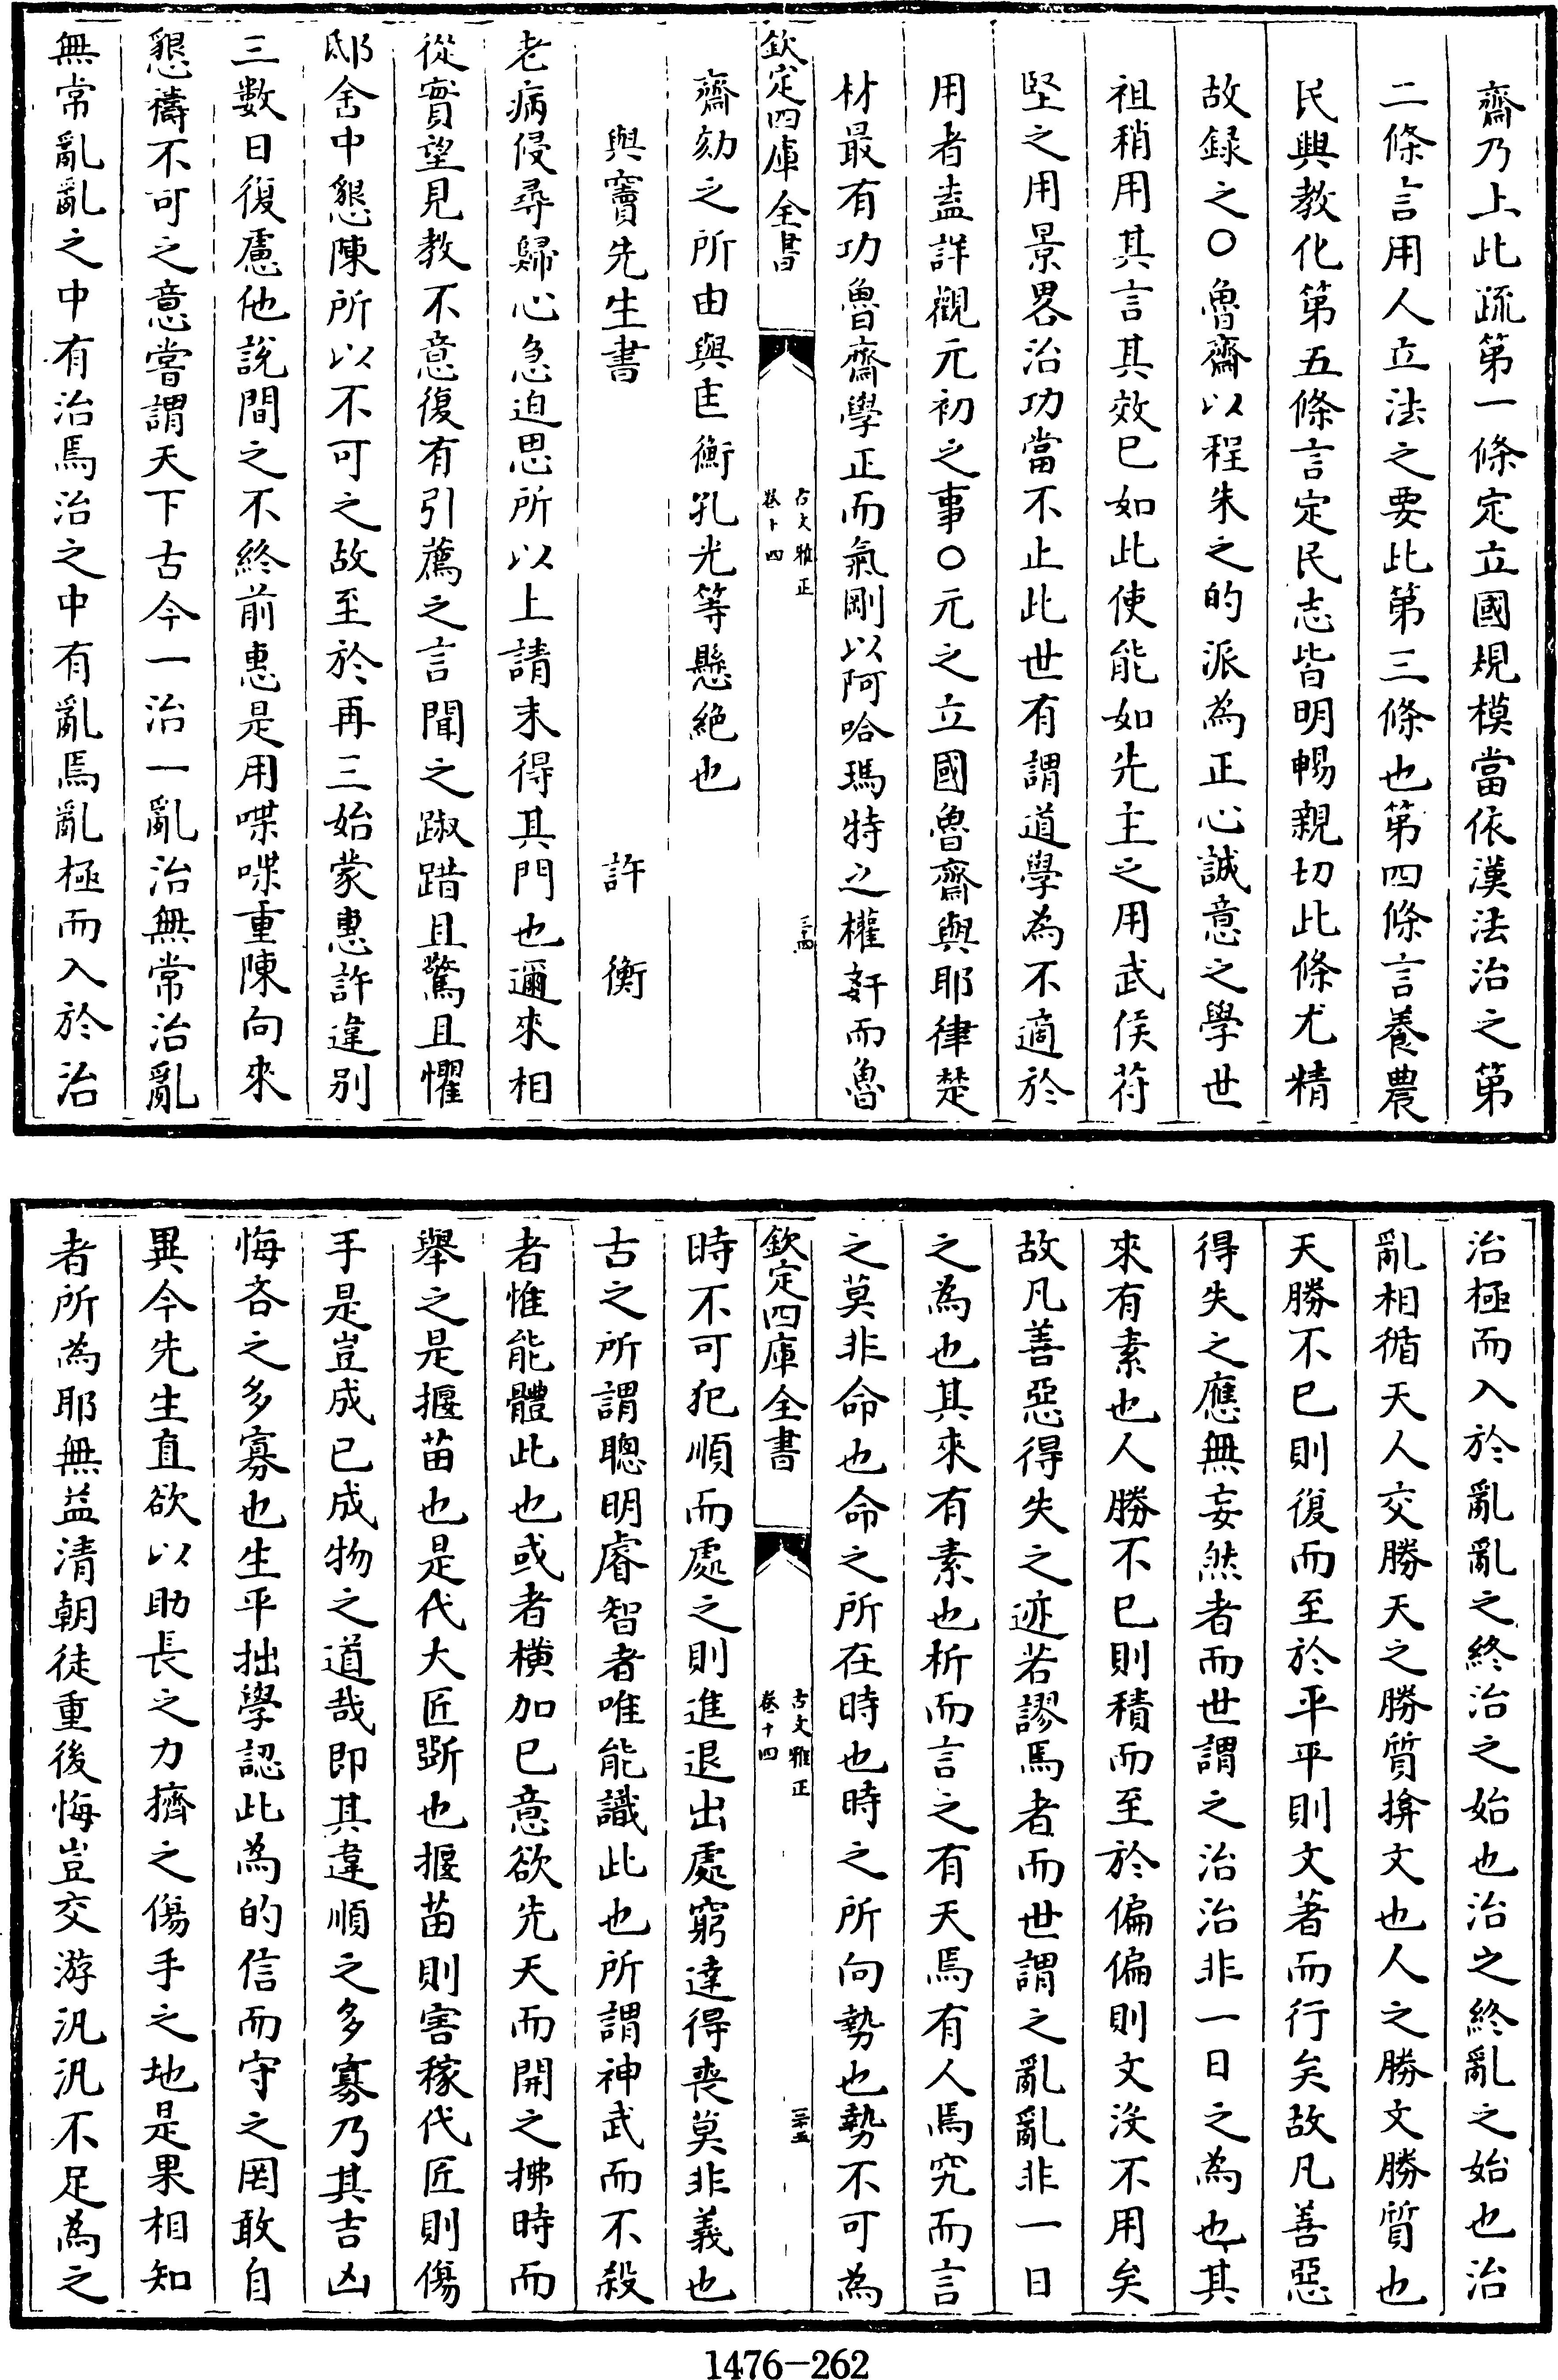 齋乃上此疏第一條定立國規模當依漢法治之第
二條言用人立法之要此第三條也第四條言養農
民興教化第五條言定民志皆明暢親切此條尤精
故録之○魯齋以程朱之的派為正心誠意之學世
祖稍用其言其效已如此使能如先主之用武侯苻
堅之用景畧治功當不止此世有謂道學為不適於
用者盍詳觀元初之事○元之立國魯齋與耶律楚
材最有功魯齋學正而氣剛以阿哈瑪特之權奸而魯
欽定四庫全書
古文雅正
卷十四
三十四
齋劾之所由與匡衡孔光等懸絶也
與竇先生書
許衡
老病侵尋歸心急迫思所以上請未得其門也邇來相
從實望見教不意復有引薦之言聞之踧踖且驚且懼
邸舍中懇陳所以不可之故至於再三始蒙惠許違别
三數日復慮他說間之不終前惠是用喋喋重陳向來
懇禱不可之意嘗謂天下古今一治一亂治無常治亂
無常亂亂之中有治焉治之中有亂焉亂極而入於治
治極而入於亂亂之終治之始也治之終亂之始也治
亂相循天人交勝天之勝質揜文也人之勝文勝質也
天勝不已則復而至於平平則文著而行矣故凡善惡
得失之應無妄然者而世謂之治治非一日之為也其
來有素也人勝不已則積而至於偏偏則文没不用矣
故凡善惡得失之迹若謬焉者而世謂之亂亂非一日
之為也其來有素也析而言之有天焉有人焉究而言
之莫非命也命之所在時也時之所向勢也勢不可為
欽定四庫全書
古文雅正
卷十四
三十五
時不可犯順而處之則進退出處窮達得喪莫非義也
古之所謂聰明睿智者唯能識此也所謂神武而不殺
者惟能體此也或者横加已意欲先天而開之拂時而
舉之是揠苗也是代大匠斲也揠苗則害稼代匠則傷
手是豈成已成物之道哉即其違順之多寡乃其吉凶
悔吝之多寡也生平拙學認此為的信而守之罔敢自
異今先生直欲以助長之力擠之傷手之地是果相知
者所為耶無益清朝徒重後悔豈交游汎汎不足為之
1476-262